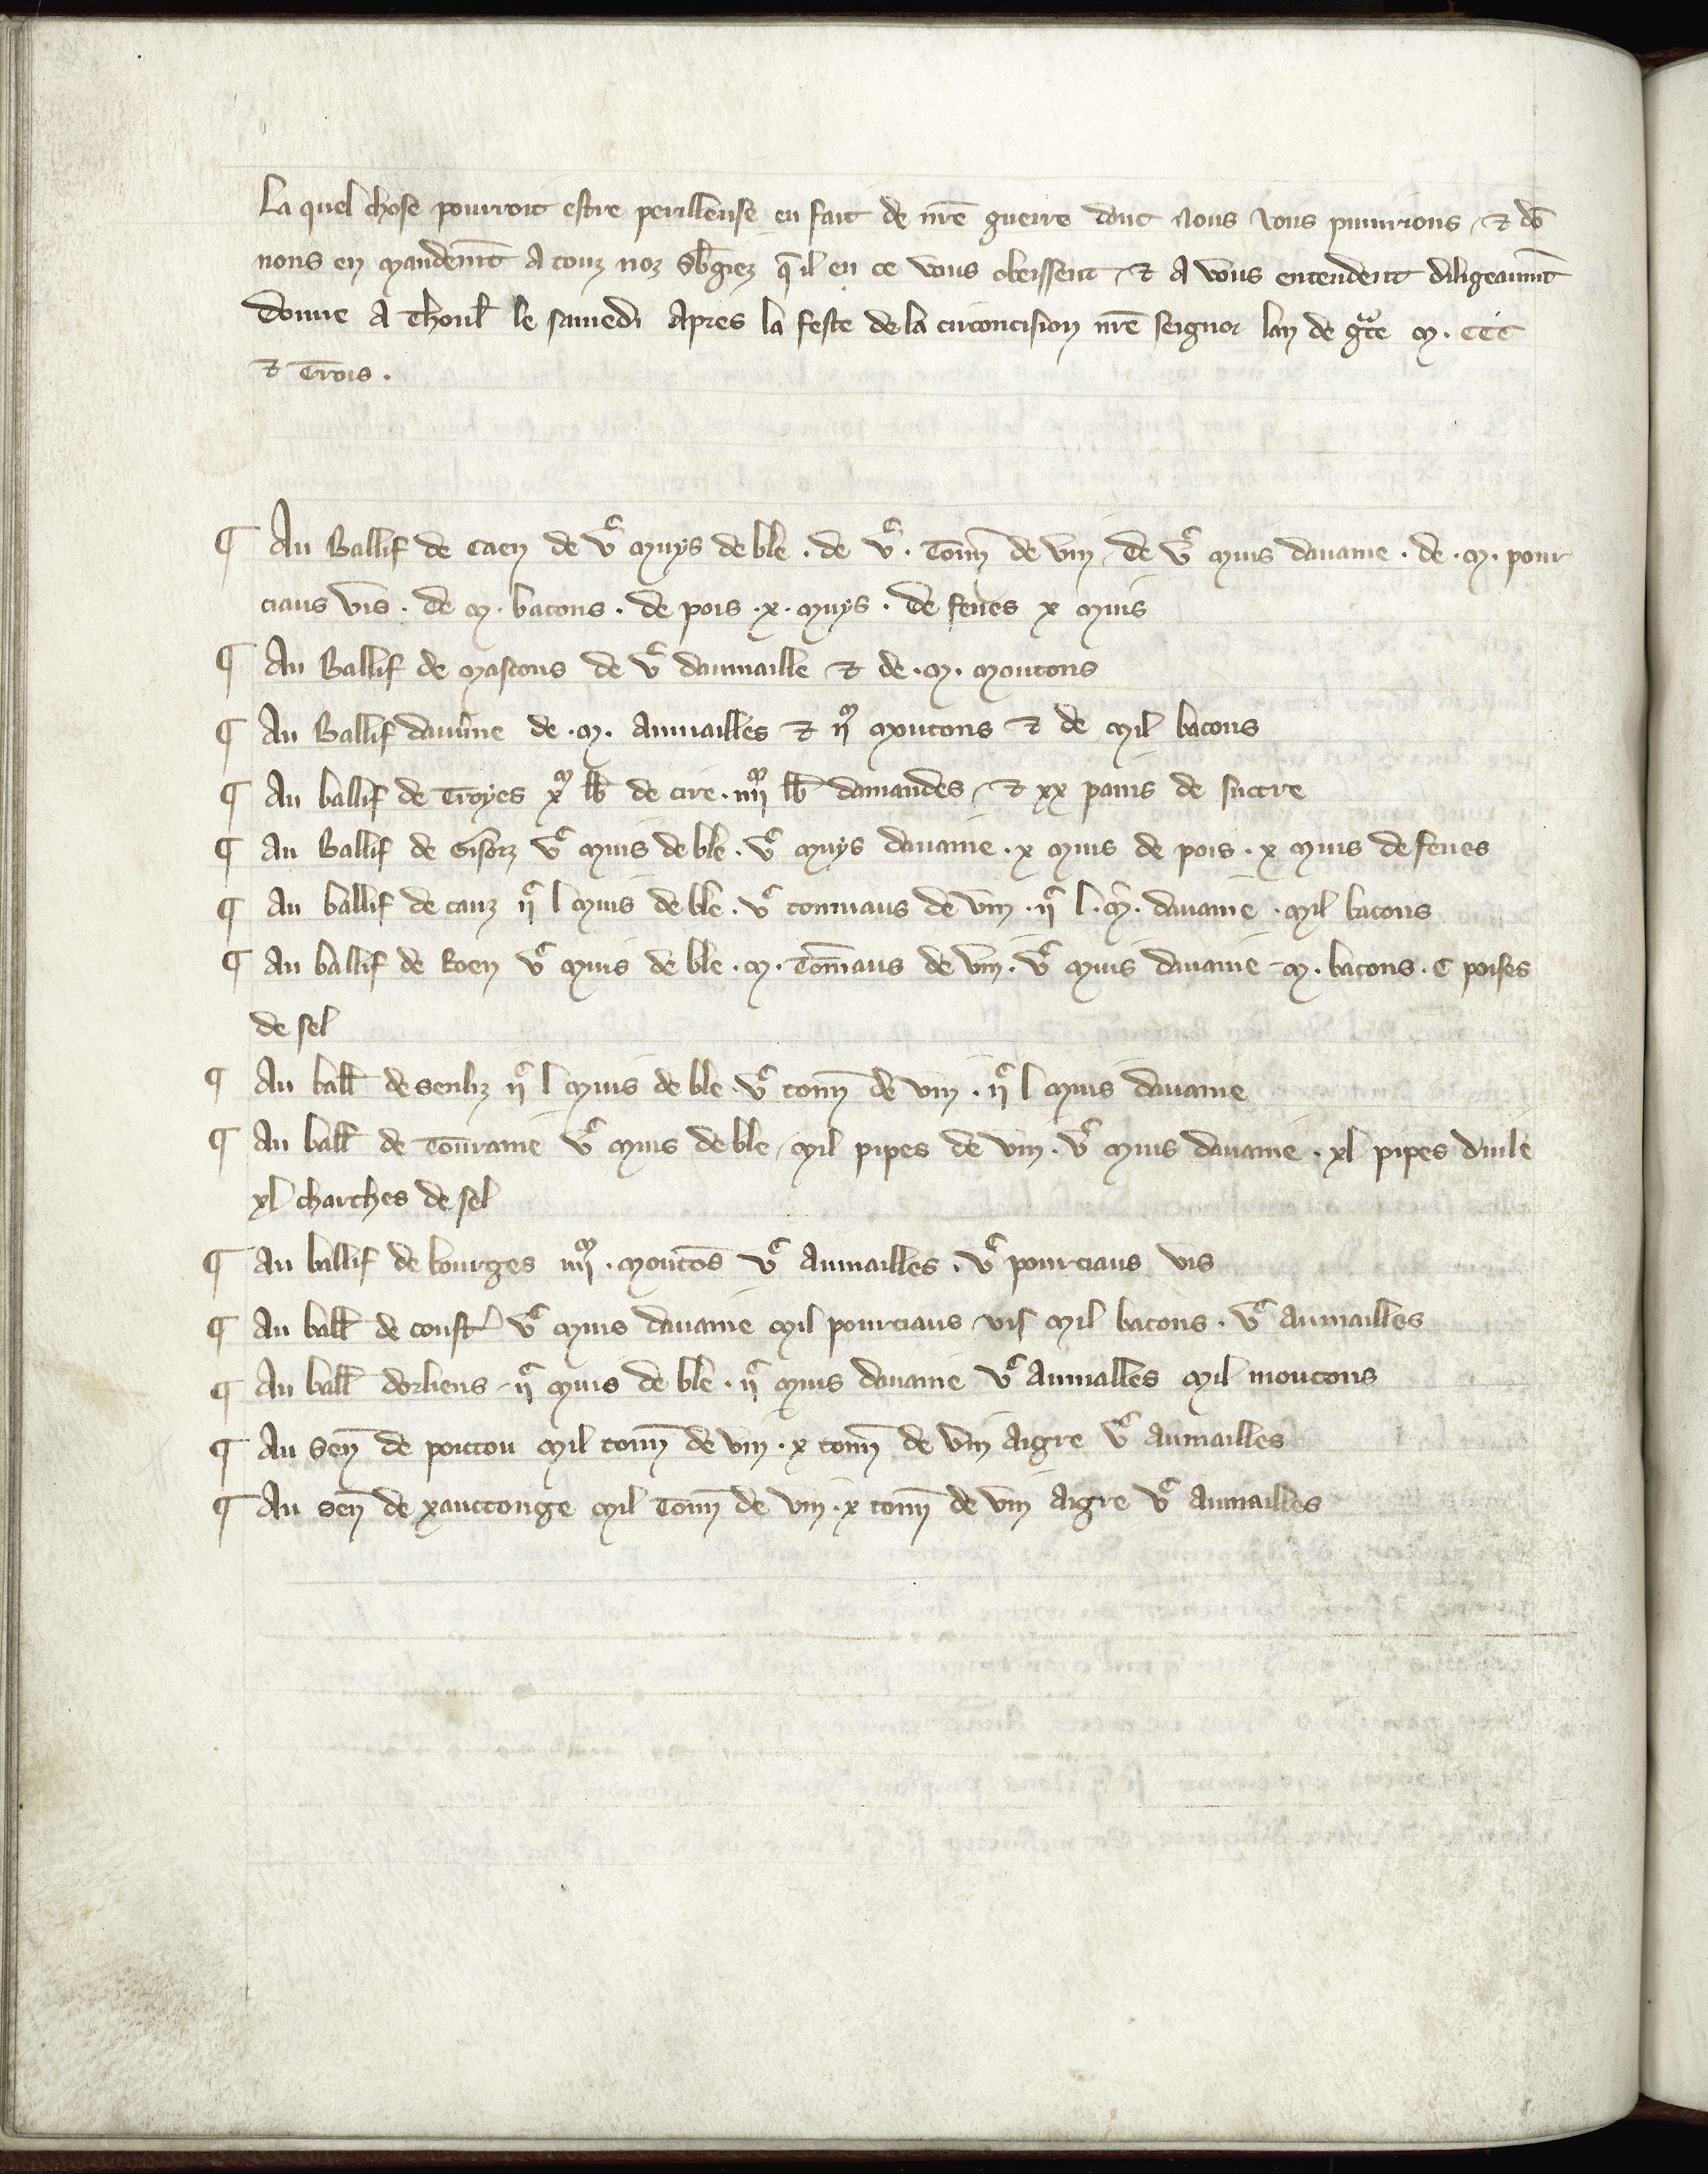 La quel chose pourroit estre perilleuse en fait de nr̄e guerre dont Nous vous punirions, ⁊ dō
nons en mandem̄t a touz noz sb̄giez q̄ il en ce vous obeissent, ⁊ a vous entendent diligeaum̄t
Donne a Thoul' le samedi apres la feste de la circoncision nr̄e seignor lan de gͣce M. CCC
⁊ Trois.
¶ Au Ballif de Caen de vᶜ muys de ble. de vᶜ. Tonn̄ de vin, de vᶜ muis davaine. de .M. pour
ciaus vis. de M. bacons. de pois .x. muys. de feves x muis
¶ Au Ballif de Mascons de vᶜ daumaille ⁊ de .M. moutons
¶ Au Ballif dauv̄ne de .M. aumailles ⁊ ijᵐ moutons ⁊ de mil bacons
¶ Au ballif de Troyes xᵐ lb̄ de cire. iiijᵐ lb̄ damandes, ⁊ xx pains de succre
¶ Au Ballif de Gisorz vᶜ muis de ble. vᶜ muys davaine. x muis de pois. x muis de feves
¶ Au ballif de Caux ijᶜ l muis de ble. vᶜ tonniaus de vin. ijᶜ l. M. davaine. mil bacons
¶ Au ballif de Roen vᶜ muis de ble. M. Ton̄iaus de vin. vᶜ muis davaine M. bacons. C poises
de sel
¶ Au ball' de Senliz ijᶜ l muis de ble. vᶜ tonn̄ de vin. ijᶜ l muis davaine
¶ Au ball' de Touraine vᶜ muis de ble, mil pipes de vin. vᶜ muis davaine. xl pipes duile
xl charches de sel
¶ Au ballif de bourges iiijᵐ. moutōs vᶜ aumailles. vᶜ pourciaus vis
¶ Au ball' de Const' vᶜ muis davaine mil pourciaus vis mil bacons. vᶜ aumailles
¶ Au ball' dorliens ijᶜ muis de ble. ijᶜ muis davaine vᶜ aumalles mil moutons
¶ Au Sen̄ de poitou mil tonn̄ de vin. x tonn̄ de vin aigre vᶜ aumailles
¶ Au Sen̄ de xanctonge mil Tonn̄ de vin. x tonn̄ de vin aigre vᶜ aumailles